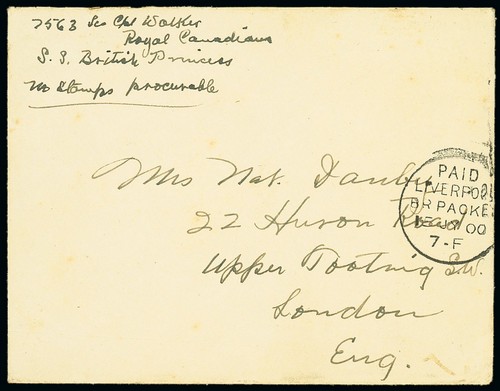 7563 Sec Cpl Walker
Royal Canadians
S. S. British Princess
no stamps procurable
Mrs Nat. Danby
22 Huron Road
Upper Tooting S.W.
London
Eng.
PAID
LIVERPOOL
BR PACKET
JY 00
7-F